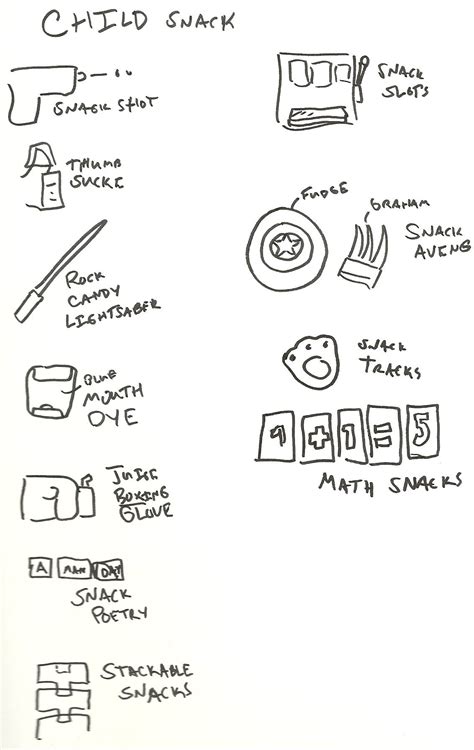 CHILD SNACK
SNACK SHOT
THUMB
SUCKE
ROCK
CANDY
LIGHTSABER
BLUE
MOUTH
DYE
JUICE
BOXING
GLOVE
A MAN DAY
SNACK
POETRY
STACKABLE
SNACKS
SNACK
SLOTS
FUDGE
GRAHAM
SNACK
AVENG
SNACK
TRACKS
1 + 1 = 5
MATH SNACKS